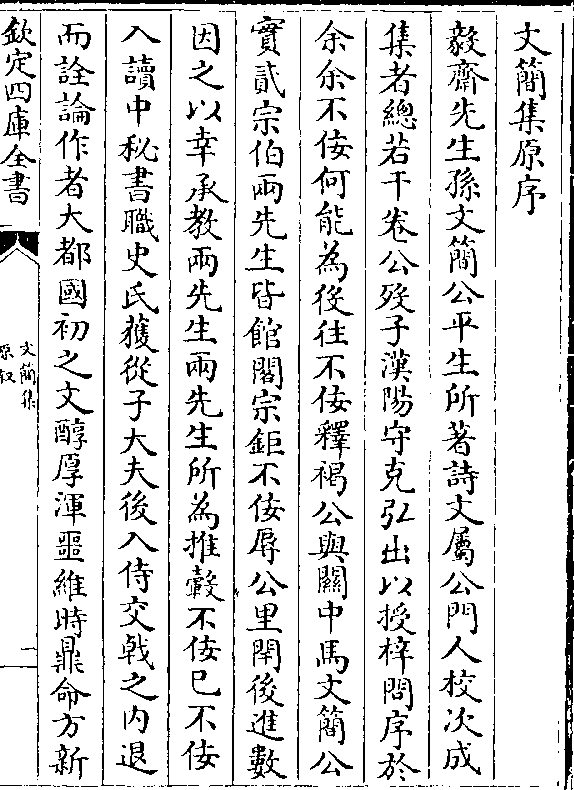 文簡集原序
毅齋先生孫文簡公平生所著詩文屬公門人校次成
集者總若干卷公歿子漢陽守克弘出以授梓問序於
余余不佞何能為役往不佞釋褐公與關中馬文簡公
實貳宗伯兩先生皆館閣宗鉅不佞辱公里閈後進數
因之以幸承教兩先生兩先生所為推轂不佞已不佞
入讀中秘書職史氏獲從子大夫後入侍交戟之内退
而詮論作者大都國初之文醇厚渾噩維時鼎命方新
欽定四庫全書
文簡集
原叙
一